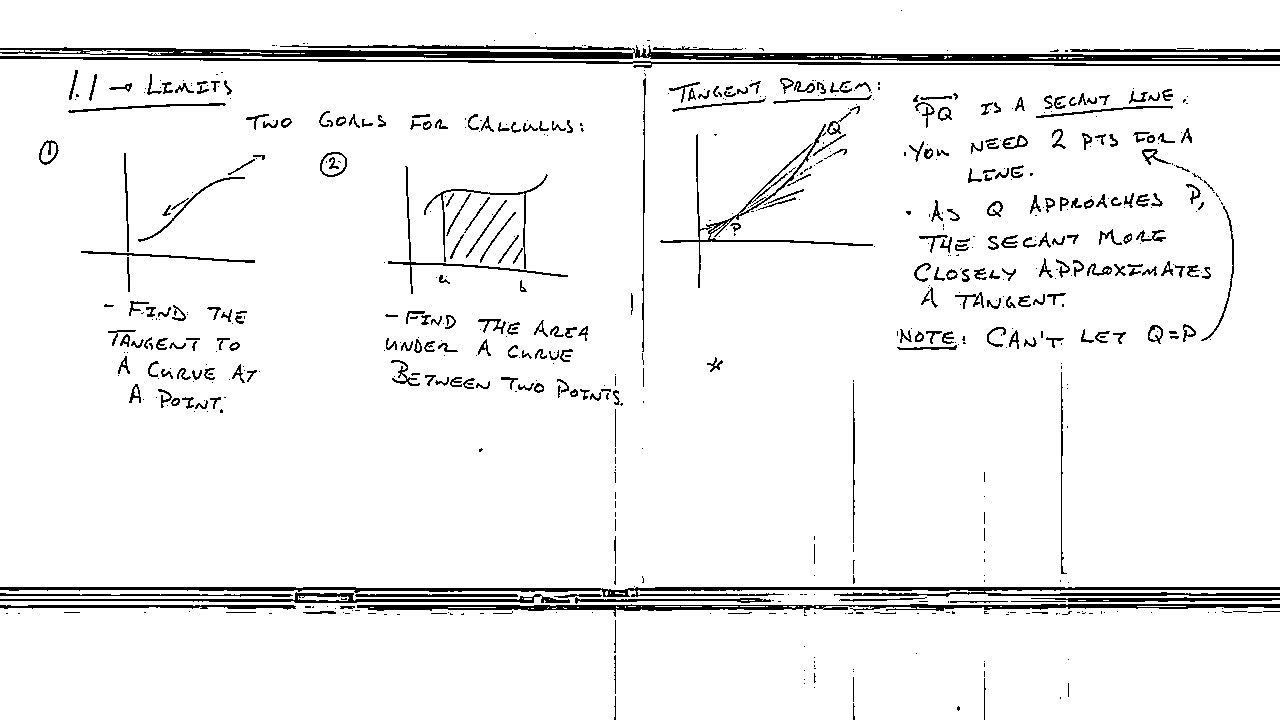 1.1 → LIMITS
TWO GOALS FOR CALCULUS:
①
②
a
b
- FIND THE
TANGENT TO
A CURVE AT
A POINT.
- FIND THE AREA
UNDER A CURVE
BETWEEN TWO POINTS.
TANGENT PROBLEM:
Q
P
PQ IS A SECANT LINE.
·YOU NEED 2 PTS FOR A
LINE.
· AS Q APPROACHES P,
THE SECANT MORE
CLOSELY APPROXIMATES
A TANGENT.
NOTE: CAN'T LET Q=P
*